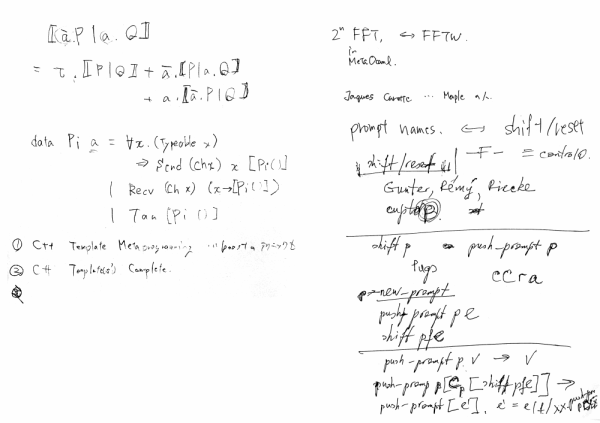 ⟦ā.P | a.Q⟧
= τ.⟦P|Q⟧ + ā.⟦P|a.Q⟧
+ a.⟦ā.P|Q⟧
data Pi a = ∀x.(Typeable x)
⇒ Send (Ch x) x [Pi()]
| Recv (Ch x) (x→[Pi()])
| Tau [Pi ()]
① C++ Template Metaprogramming
② C++ Template(s) Complete.
2ⁿ FFT, ↔ FFTW.
in
MetaOcaml.
Jaques Carette ... Maple
prompt names. ↔ shift/reset
shift/reset -F- = control0.
Gunter, Rémy, Riecke
cupto p
shift p push-prompt p
CCra
p new-prompt
push prompt p e
shift pfe
push-prompt p v → v
push-promp p[Cp[shift pfe]] →
push-prompt [e'], e' = e[f/